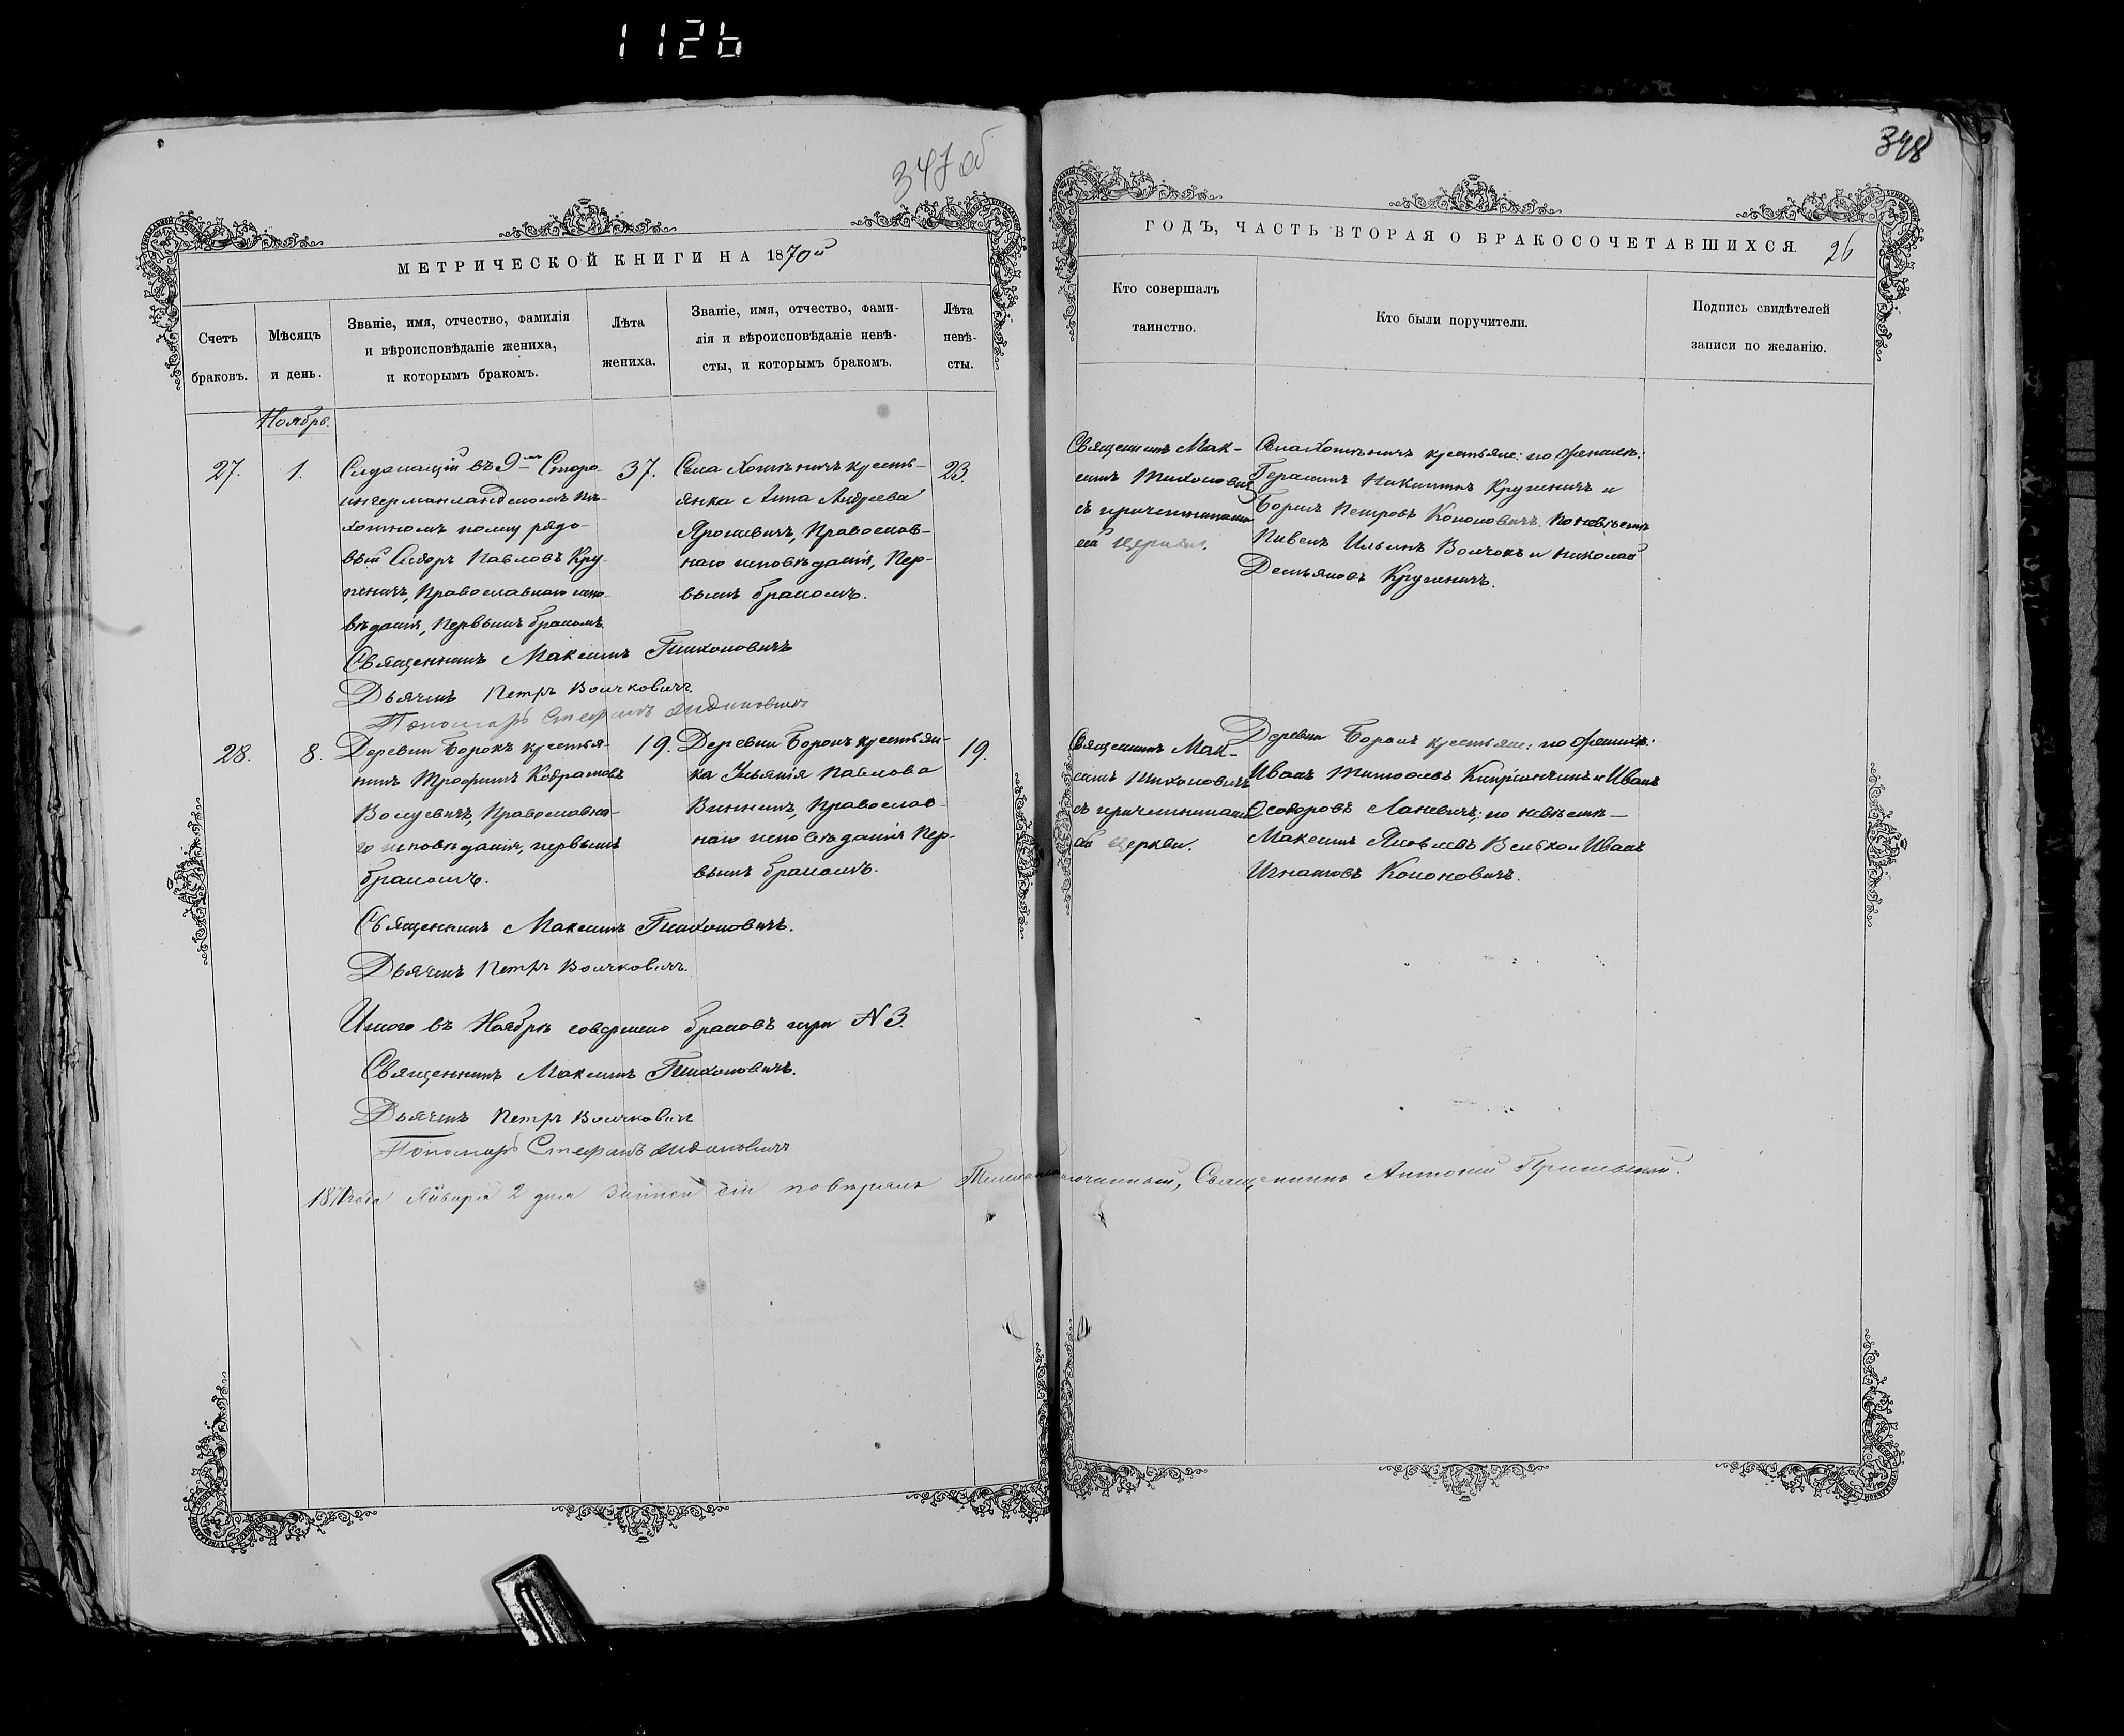 1126
347 об
МЕТРИЧЕСКОЙ КНИГИ НА 1870й
Счетъ браковъ.
Мѣсяцъ и день.
Званіе, имя, отчество, фамилія
и вѣроисповѣданіе жениха,
и которымъ бракомъ.
Лѣта
жениха.
Званіе, имя, отчество, фами-
лія и вѣроисповѣданіе невѣ-
сты, и которымъ бракомъ.
Лѣта
невѣ-
сты.
Ноябрь.
27.
1.
въ 9мъ Старо-
ингерманландскомъ пѣ-
хотномъ полку рядо-
вый Сидоръ Павловъ Кру
Православнаго испо-
вѣданія, Первымъ бракомъ
37.
Села Хотыничъ кресть-
янка Анна Андреева
Православ-
наго исповѣданія, Пер-
вымъ бракомъ.
23.
Священникъ Максимъ Тихоновичъ
Дьячекъ Петръ Волчковичъ.
Пономарь Стефанъ
28.
8.
Деревни Борокъ крестья-
нинъ Трофимъ Кодратовъ
Православна-
го исповѣданія, первымъ
бракомъ.
19.
Деревни Борокъ крестьян-
ка Ульянія Павлова
Православ-
наго исповѣданія Пер-
вымъ бракомъ.
19.
Священникъ Максимъ Тихоновичъ.
Дьячекъ Петръ Волчковичъ.
Итого въ Ноябрѣ совершено браковъ три N 3.
Священникъ Максимъ Тихоновичъ.
Дьячекъ Петръ Волчковичъ
Пономарь Стефанъ
1871 года Января 2 дня записи сіи повѣрялъ Священникъ Антоній
348
ГОДЪ, ЧАСТЬ ВТОРАЯ О БРАКОСОЧЕТАВШИХСЯ.
26
Кто совершалъ
таинство.
Кто были поручители.
Подпись свидѣтелей
записи по желанію.
Священникъ Мак-
симъ Тихоновичъ
съ причетниками
сей церкви.
Села Хотыничъ крестьяне: по женихѣ:
Герасимъ Никитинъ и
Борисъ Петровъ Кононовичъ. По невѣстѣ
Ильинъ Волчокъ и Николай
Демьяновъ
Священникъ Мак-
симъ Тихоновичъ
съ причетниками
сей церкви.
Деревни Борокъ крестьяне: по женихѣ:
Иванъ и Иванъ
Ѳеодоровъ по невѣстѣ —
Максимъ Яковлевъ и Иванъ
Игнатовъ Кононовичъ.